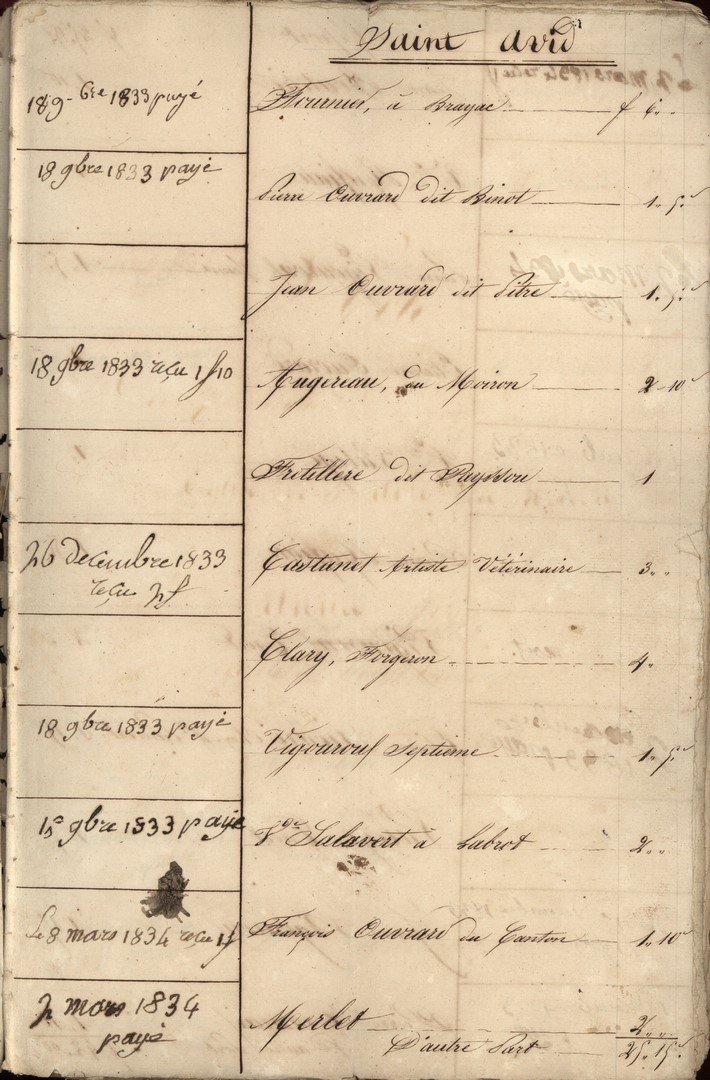 Saint Avid
18 9.bre 1833 payé Fournier, à Brayac f 6"
18 9bre 1833 payé Pierre Ouvrard dit Binot 1" 5s
Jean Ouvrard dit Pitre 1" 5s
18 9bre 1833 reçu 1f10 Augereau, du Moiron 2 10s
Fretillere dit Peyssou 1
26 decembre 1833 Castanet Artiste Vétérinaire 3" "
reçu 2f
Clary, Forgeron 4"
18 9bre 1833 payé Vigourouf Septieme 1" 5s
15 9bre 1833 payé Ve Salavert à Labrot 2" "
Le 8 mars 1834 reçu 1f François Ouvrard du Canton 1" 10s
2 mars 1834 Merlet 2" "
payé D'autre Part 25" 15s